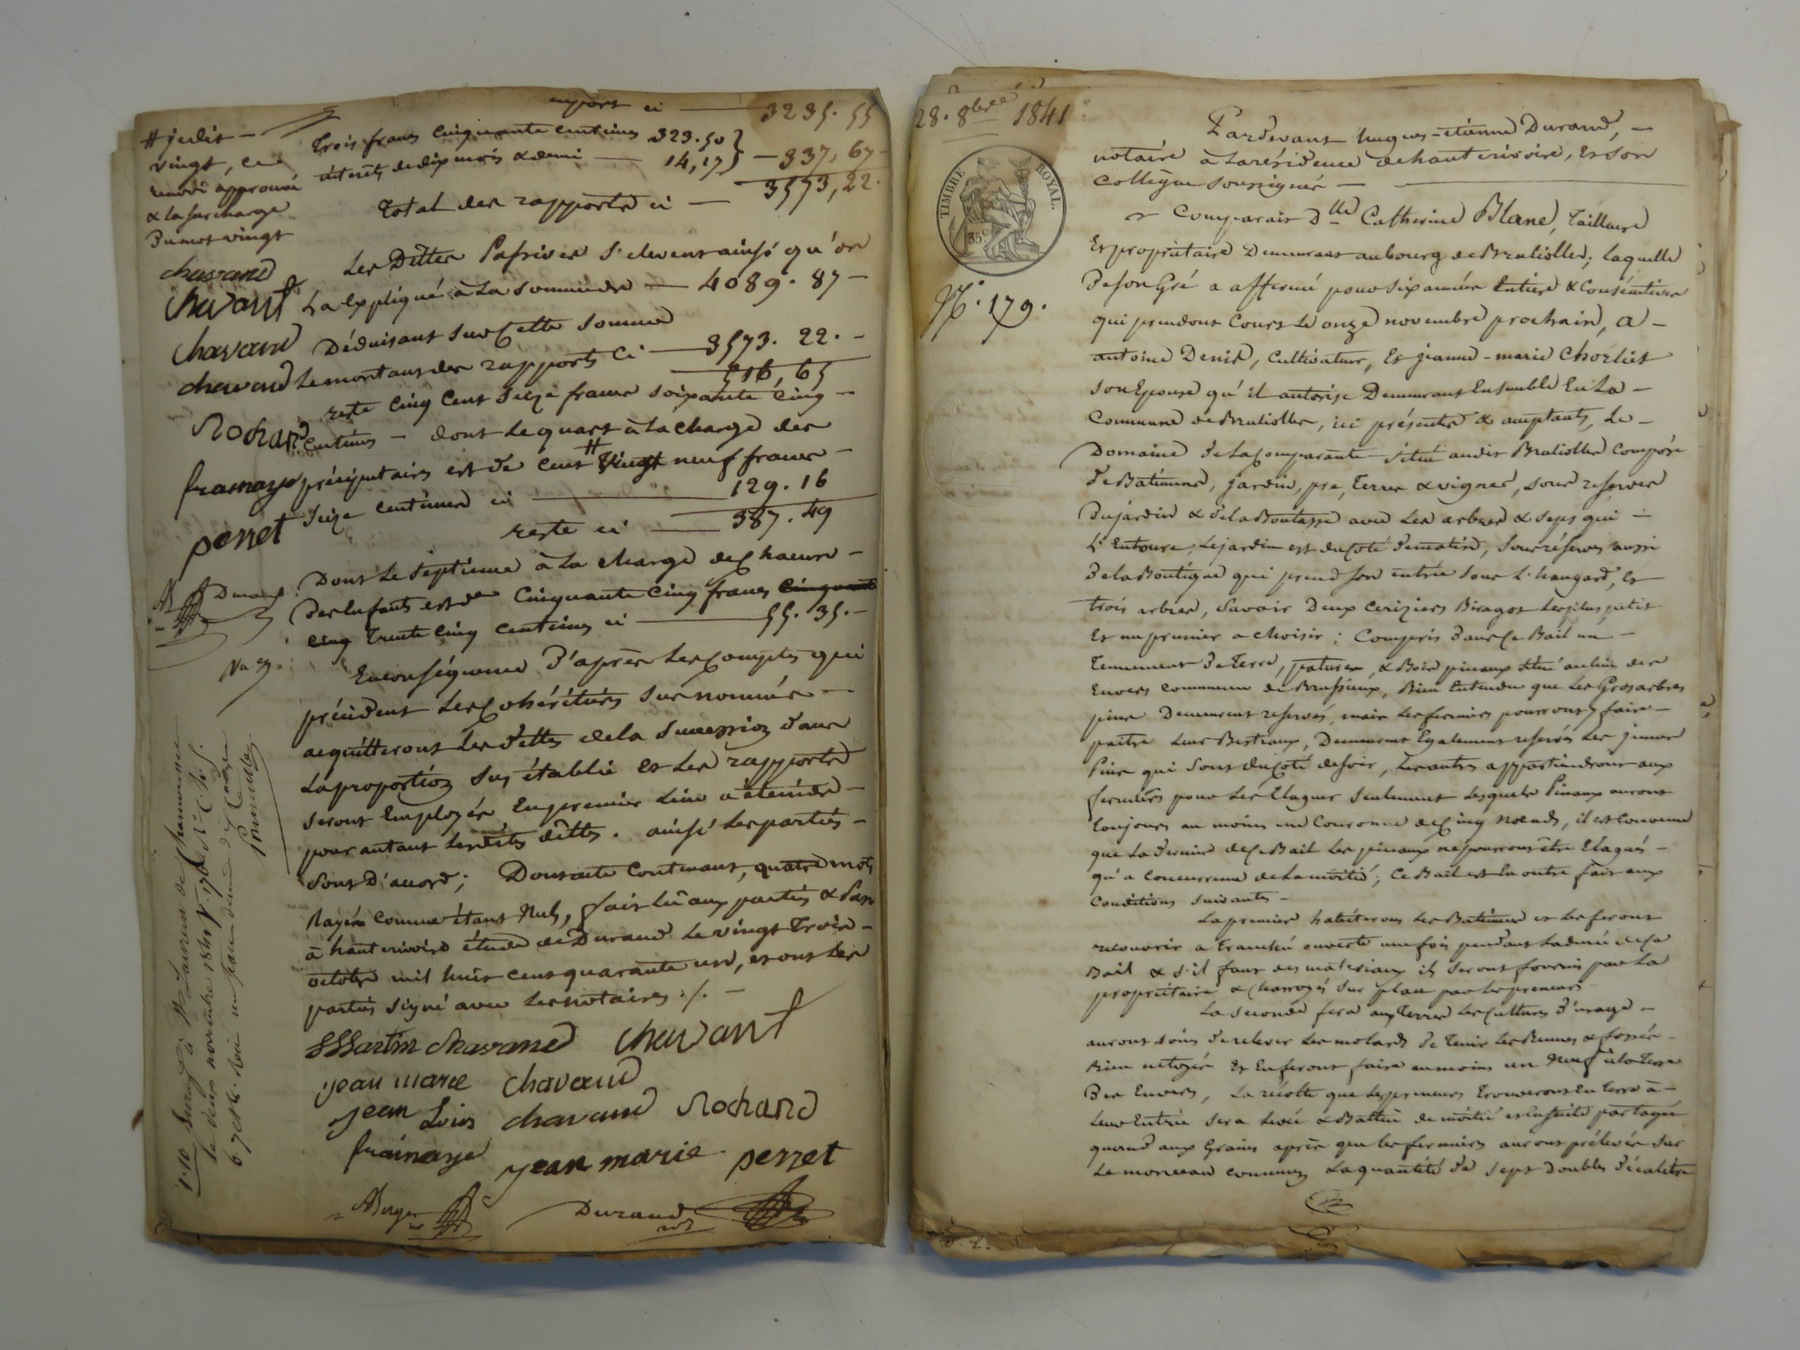 report ci — 3235. 55
trois francs cinquante centimes 323.50 }
intérêts de dix mois & demi — 14,17 } — 337, 67
3573, 22.
total des rapports ci —
Les Dettes Passives s'elevent ainsi qu'on
L'a Expliqué à La Somme de — 4089. 87 —
Déduisant Sur Cette Somme
Le montant des rapports Ci — 3573. 22. —
516, 65
reste Cinq Cent Seize francs Soixante Cinq —
Centimes — dont Le quart à La Charge des
préciputaires est de Cent # Vingt neuf francs —
Seize centimes ci — 129. 16
reste ci — 387. 49
Dont Le Septieme à La Charge de Chacun —
Des Enfants est de Cinquante Cinq francs Cinquante
Cinq Trente Cinq Centimes ci — 55. 35. —
En conséquence D'après Les Comptes qui
précédent Les Cohéritiers Sus nommés —
acquitteront Les dettes de la Succession dans
La proportion Sus établie et Les rapports
Seront Employés En premier Lieu a éteindre —
pour autant Lesdites dettes. ainsi Les parties —
Sont D'accord; Dont acte Contenant, quatre mots
Rayés Comme étant Nuls, fait Lû aux parties & Passé
à hauterivoire étude de Durand Le vingt Trois —
octobre mil huit cent quarante un, et ont Les
parties signé avec Les notaires ./. —
Martin chavand Chavant
jean marie chavand
jean Loüis chavand Rochard
framaye jean marie perret
ABerger Durand
# jedis —
vingt, Ce
renvoi approuvé
& la Surcharge
Du mot vingt
chavand
Chavant
Chavand
chavand
Rochard
framaye
perret
Durand
28. 8bre 1841
TIMBRE ROYAL.
35c
N°. 179.
Pardevant hugues-etienne Durand, —
notaire à La résidence de hauterivoire, Et Son
Collègue Soussignés —
Comparait Dlle Catherine Blanc, Tailleuse
Et propriétaire Demeurant au bourg de Brulioles; Laquelle
De Son Gré a affermé pour Six années Entieres & Consécutives
qui prendont Cours Le onze novembre prochain, a —
antoine Denis, Cultivateur, Et jeanne-marie Chorliet
Son Epouse qu'il autorise Demeurant Ensemble En La —
Commune de Brulioles, ici présents & acceptants, Le —
Domaine De La Comparante Situé audit Brulioles Composé
De Bâtiments, jardin, pré, Terres & vignes, Sous reserve
Du jardin & de la Boutasse avec Les arbres & Seps qui —
L'Entoure, Le jardin est du Coté de matin, Sous réserve aussi
De La Boutique qui prend Son entrée Sous L'hangard, Et
trois arbres, Savoir Deux Ceriziers Bigagot Les plus petit
Et un prunier a choisir; Compris dans Ce Bail un —
Tennement De Terre, patures, & Bois pinaux Situé au lieu des
Envers Commune de Brussieux, Bien Entendu que Les Gros arbres
pins Demeurent reservés, mais Les fermiers pourront y faire —
paitre Leurs Bestiaux, Demeurent Egalement reservés Les jeunes
Pins qui Sont du Coté de soir, Les autres appartiendront aux
fermiers pour Les Elaguer Seulement Lesquels Pinaux auront
toujours au moins une Couronne de Cinq Noeuds, il est Convenu
que La Derniere de Ce Bail Les pinaux ne pourront être Elagués —
qu'a Concurrence de La moitié; Ce Bail est En outre fait aux
Conditions Suivantes —
La premiere habiteront Les Batiments et Les feront
recouvrir a tranché ouverte une fois pendant La durée de Ce
Bail & S'il faut des matériaux ils Seront fournis par La
propriétaire & Charroyés Sur place par Les preneurs
La Seconde fera aux Terres Les Cultures D'usage —
auront Soins De relever Les molards De Tenir Les Rennes & fossés —
Bien netoyés Et En feront faire au moins un Neuf à La Terre
Des Envers, La récolte que Les preneurs trouveront En Terre à —
Leur Entrée Sera Levée & Battue de moitié et Ensuite partagée
quand aux Grains après que Les fermiers auront prélevés Sur
Le morceau Commun La quantité de Sept Doubles Décalitres